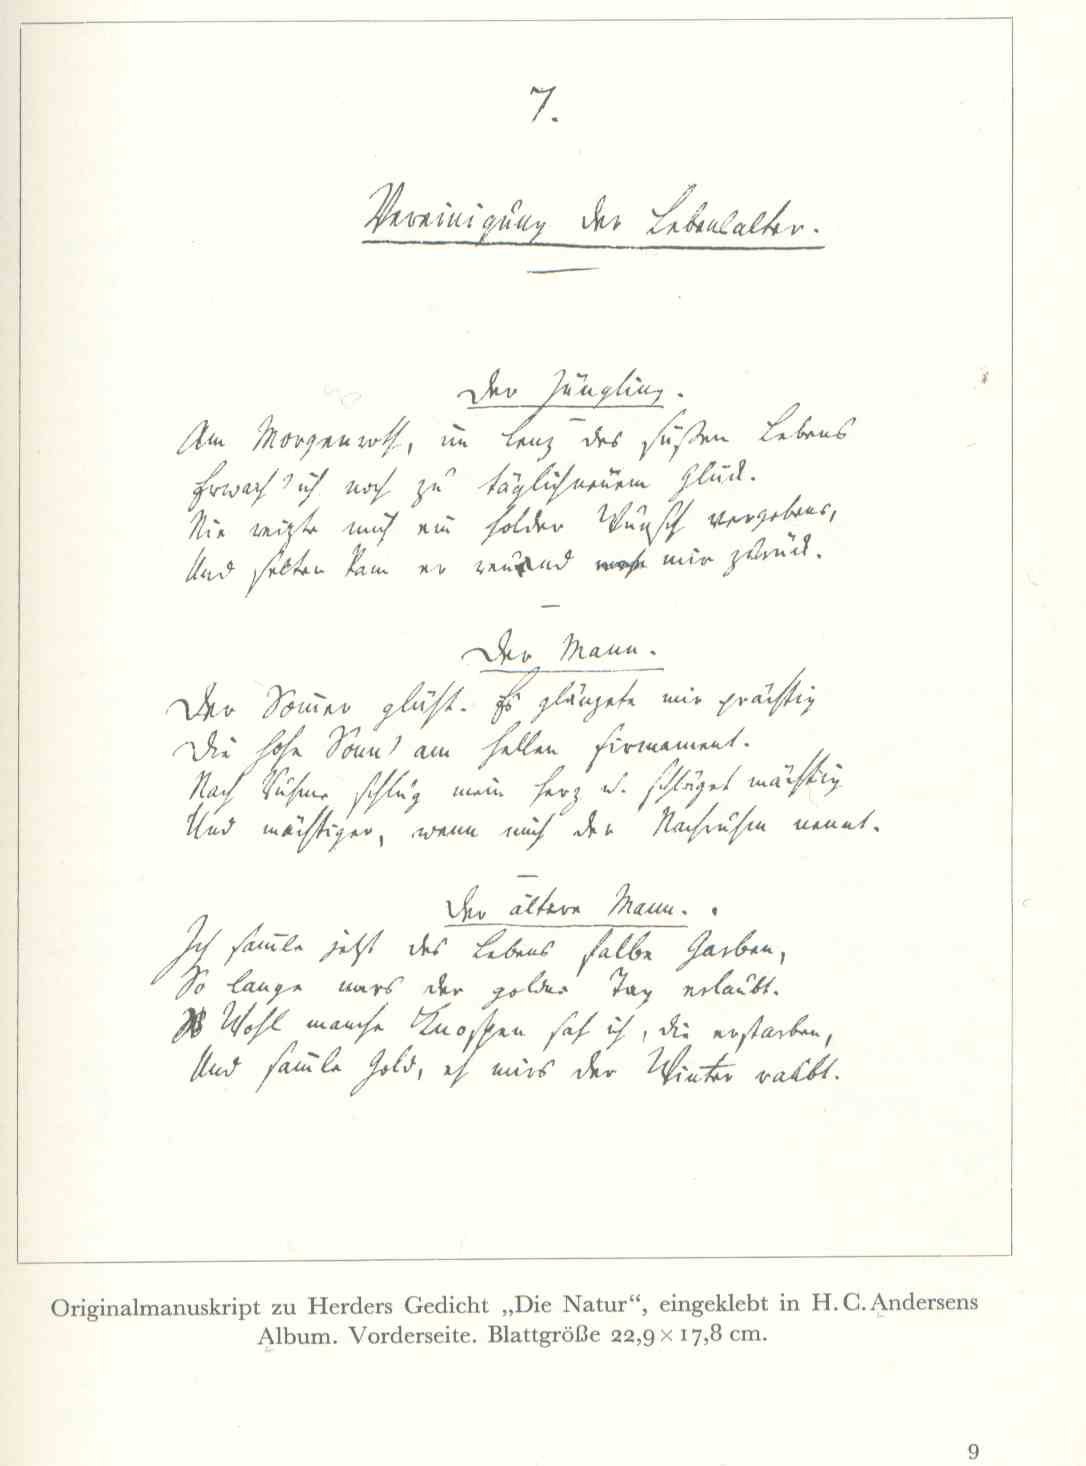 7.
Vereinigung der Lebensalter.
Der Jüngling.
Am Morgenroth, im Lenz des süßen Lebens
Erwach' ich noch zu täglichneuem Glück.
Nie reizte mich ein holder Wunsch vergebens,
Und selten kam er reuend mir zurück.
Der Mann.
Der Som̄er glüht. Es glänzete mir prächtig
Die hohe Sonn' am hellen Firmament.
Nach Ruhme schlug mein Herz u. schläget mächtig
Und mächtiger, wenn mich der Nachruhm nennt.
Der ältere Mann.
Ich sam̄le jetzt des Lebens falbe Garben,
So lange mirs der goldne Tag erlaubt.
Wohl manche Knospen sah ich, die erstarben,
Und sam̄le Gold, eh mirs der Winter raubt.
Originalmanuskript zu Herders Gedicht „Die Natur“, eingeklebt in H. C. Andersens
Album. Vorderseite. Blattgröße 22,9 × 17,8 cm.
9